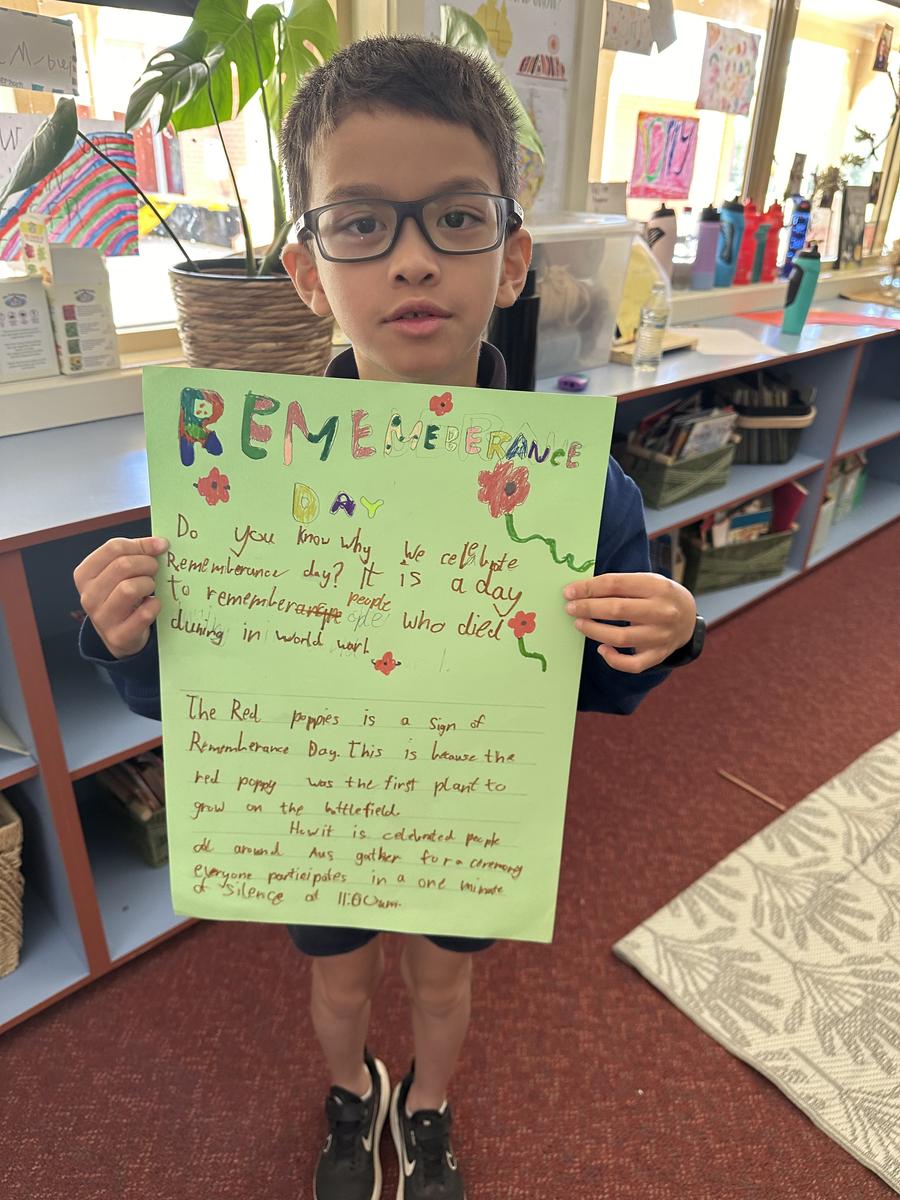 REMEMEBERANCE
DAY
Do you know why we celebrate
Rememberance day? It is a day
to remember people who died
during in world war1.
The Red poppies is a sign of
Rememberance Day. This is because the
red poppy was the first plant to
grow on the battlefield.
How it is celebrated people
all around Aus gather for a ceremony
everyone participates in a one minute
of silence at 11:00am.